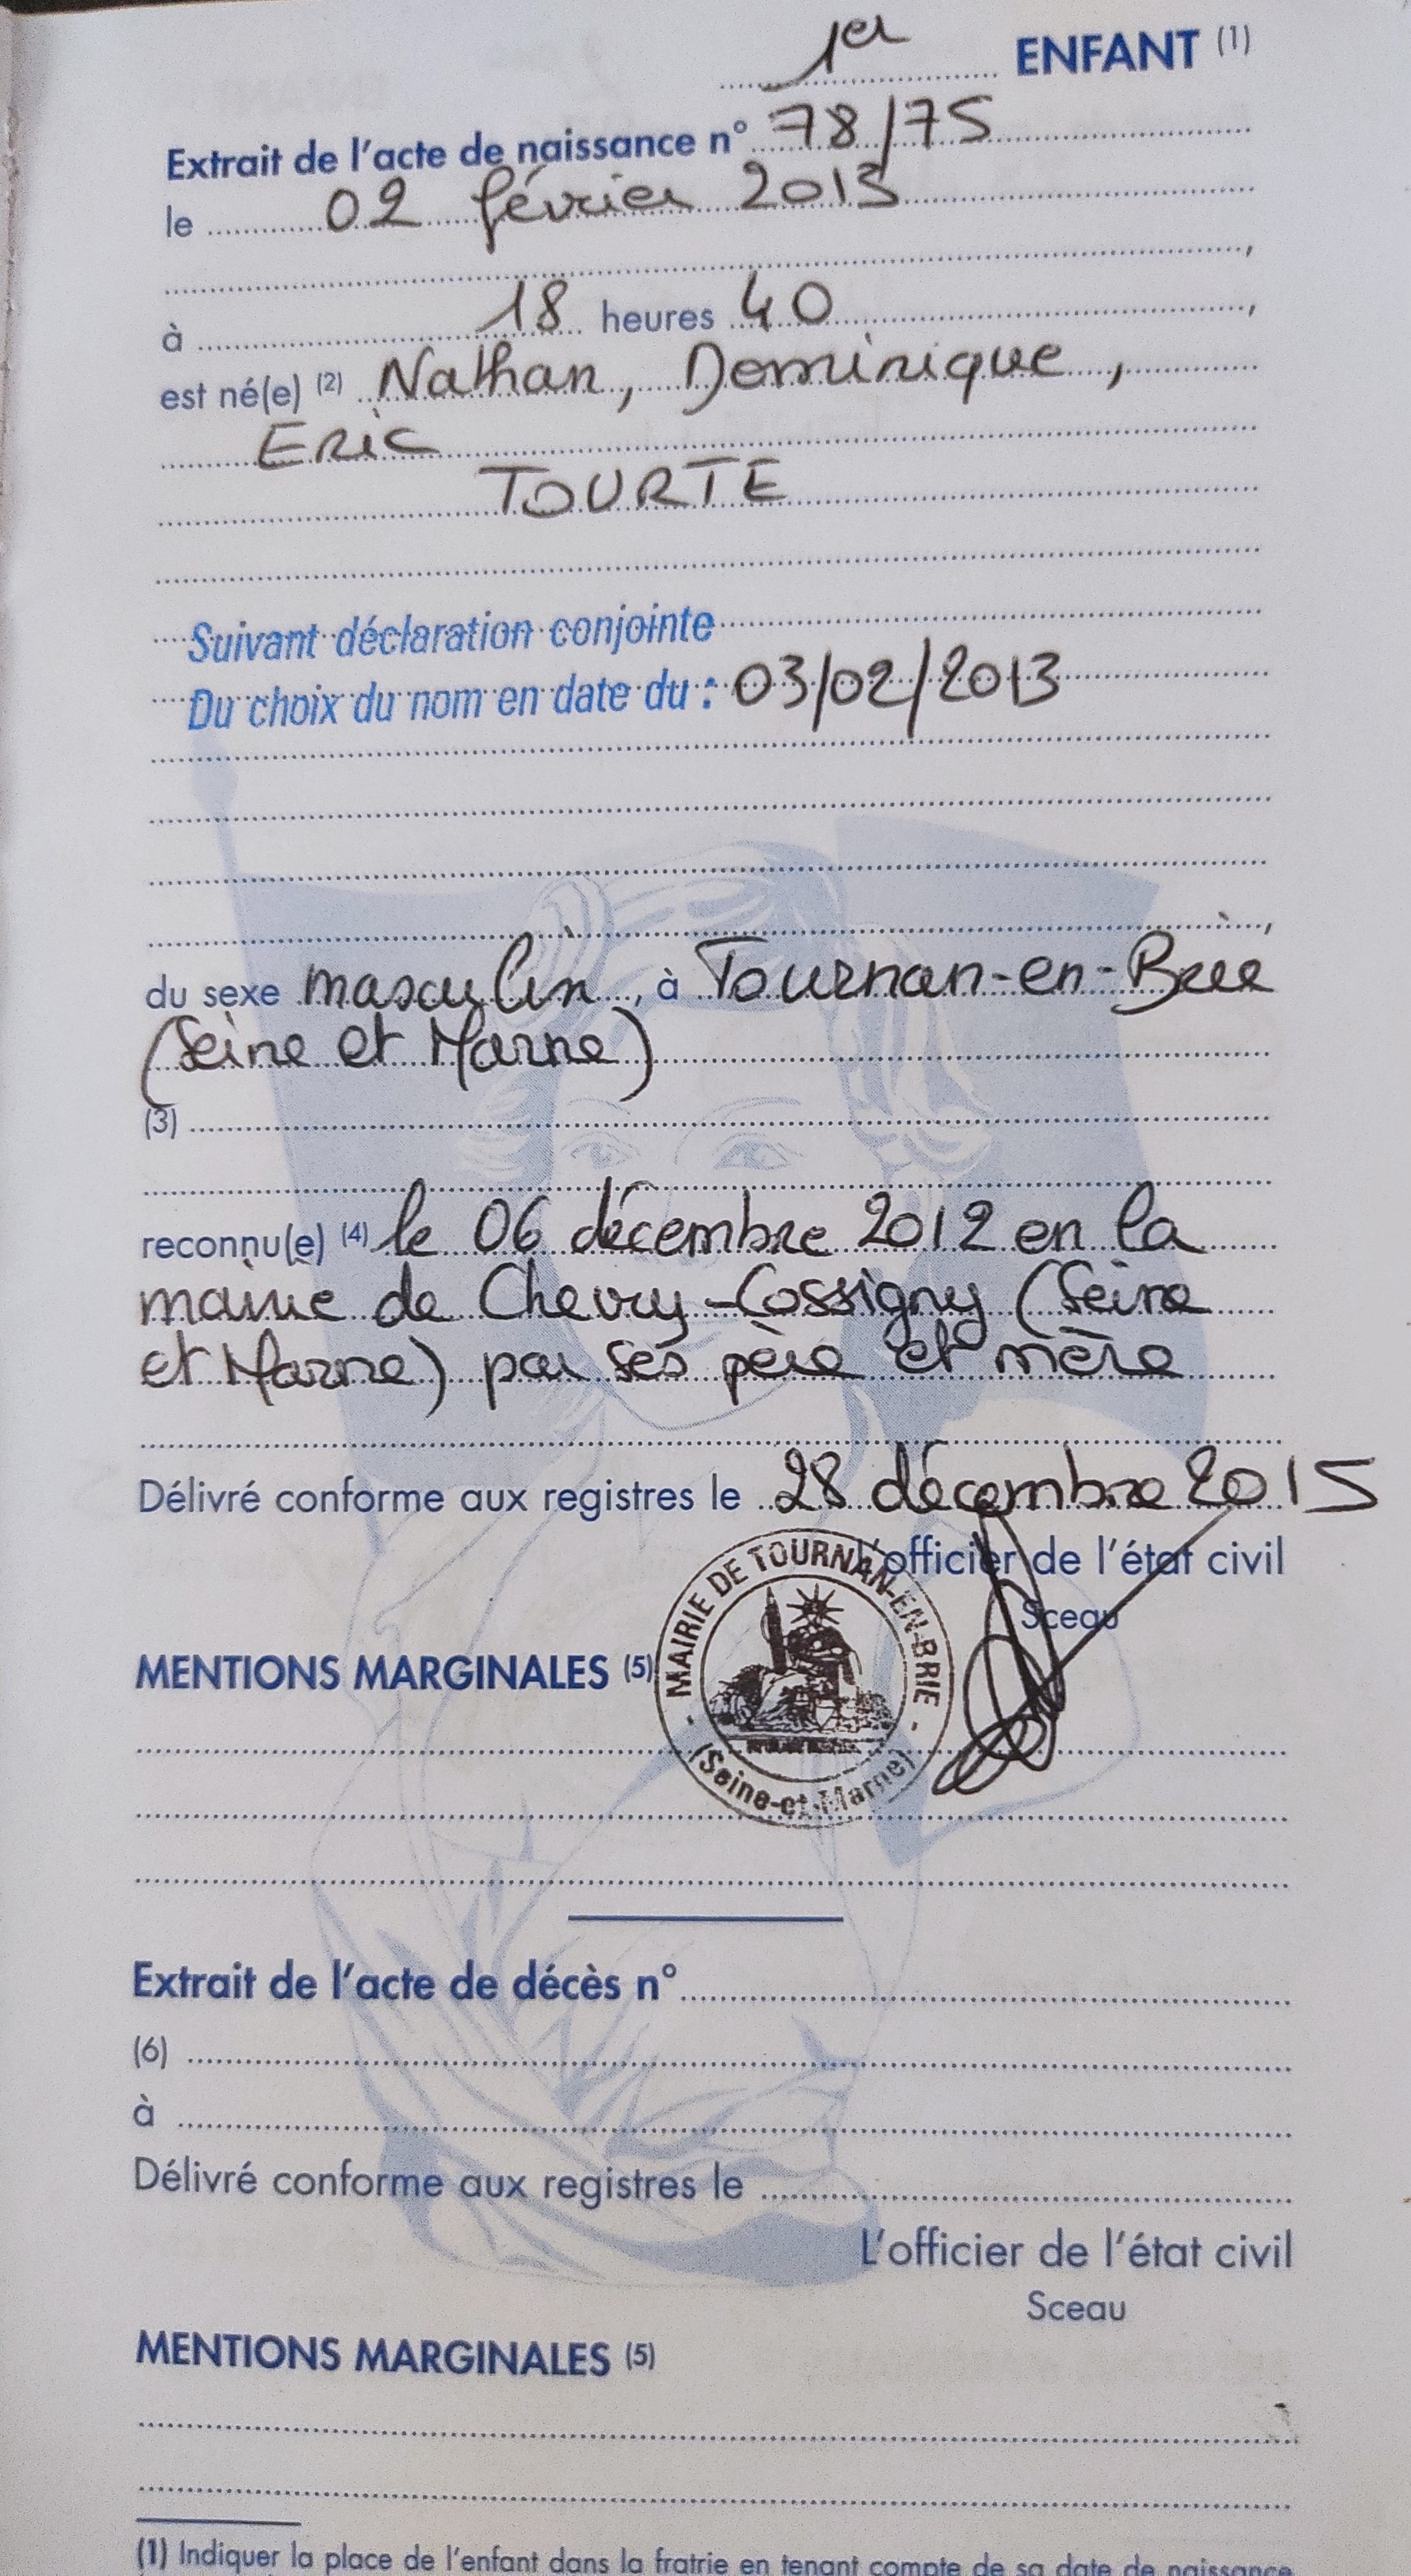 1er ENFANT (1)
Extrait de l'acte de naissance n° 78/75
le 02 février 2013
,
à 18 heures 40 ,
est né(e) (2) Nathan, Dominique,
Eric
TOURTE
Suivant déclaration conjointe
Du choix du nom en date du : 03/02/2013
,
du sexe masculin, à Tournan-en-Brie
(Seine et Marne)
(3)
reconnu(e) (4) le 06 décembre 2012 en la
mairie de Chevry-Cossigny (Seine
et Marne) par ses père et mère
Délivré conforme aux registres le 28 décembre 2015
L'officier de l'état civil
Sceau
MAIRIE DE TOURNAN-EN-BRIE
(Seine-et-Marne)
MENTIONS MARGINALES (5)
Extrait de l'acte de décès n°
(6)
à
Délivré conforme aux registres le
L'officier de l'état civil
Sceau
MENTIONS MARGINALES (5)
(1) Indiquer la place de l'enfant dans la fratrie en tenant compte de sa date de naissance